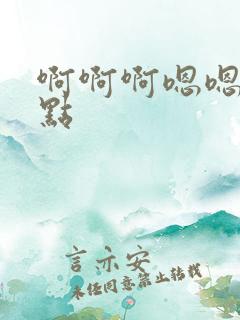 啊啊啊嗯嗯
點
言亦安
未经同意禁止转载